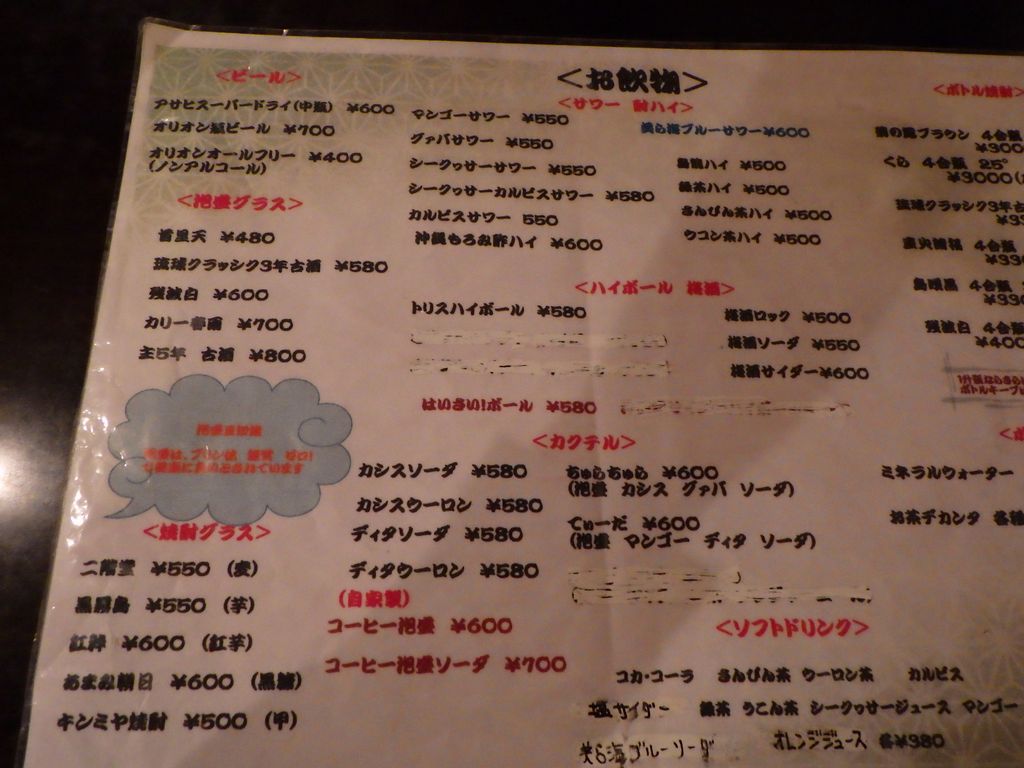 <お飲物>
<ビール>
アサヒスーパードライ(中瓶) ¥600
オリオン瓶ビール ¥700
オリオンオールフリー ¥400
(ノンアルコール)
<泡盛グラス>
首里天 ¥480
琉球クラッシク3年古酒 ¥580
残波白 ¥600
カリー春雨 ¥700
主5年 古酒 ¥800
泡盛豆知識
泡盛は、プリン体 糖質 ゼロ!
<焼酎グラス>
二階堂 ¥550 (麦)
黒霧島 ¥550 (芋)
¥600 (紅芋)
あまみ朝日 ¥600 (黒糖)
キンミヤ焼酎 ¥500 (甲)
<サワー 酎ハイ>
マンゴーサワー ¥550
グァバサワー ¥550
シークヮサーサワー ¥550
シークヮサーカルピスサワー ¥580
カルピスサワー 550
沖縄もろみ酢ハイ ¥600
美ら海ブルーサワー¥600
烏龍ハイ ¥500
緑茶ハイ ¥500
さんぴん茶ハイ ¥500
ウコン茶ハイ ¥500
<ハイボール 梅酒>
トリスハイボール ¥580
はいさい!ボール ¥580
梅酒ロック ¥500
梅酒ソーダ ¥550
梅酒サイダー¥600
<カクテル>
カシスソーダ ¥580
カシスウーロン ¥580
ディタソーダ ¥580
ディタウーロン ¥580
(自家製)
コーヒー泡盛 ¥600
コーヒー泡盛ソーダ ¥700
ちゅらちゅら ¥600
(泡盛 カシス グァバ ソーダ)
てぃーだ ¥600
(泡盛 マンゴー ディタ ソーダ)
<ソフトドリンク>
コカ・コーラ さんぴん茶 ウーロン茶 カルピス
塩サイダー 緑茶 うこん茶 シークヮサージュース マンゴー
美ら海ブルーソーダ オレンジジュース 各¥380
<ボトル焼酎>
ブラウン 4合瓶
¥300
くら 4合瓶 25°
¥3000
琉球クラッシク3年古
4合瓶
4合瓶
残波白 4合瓶
¥400
ミネラルウォーター
お茶デカンタ 各種